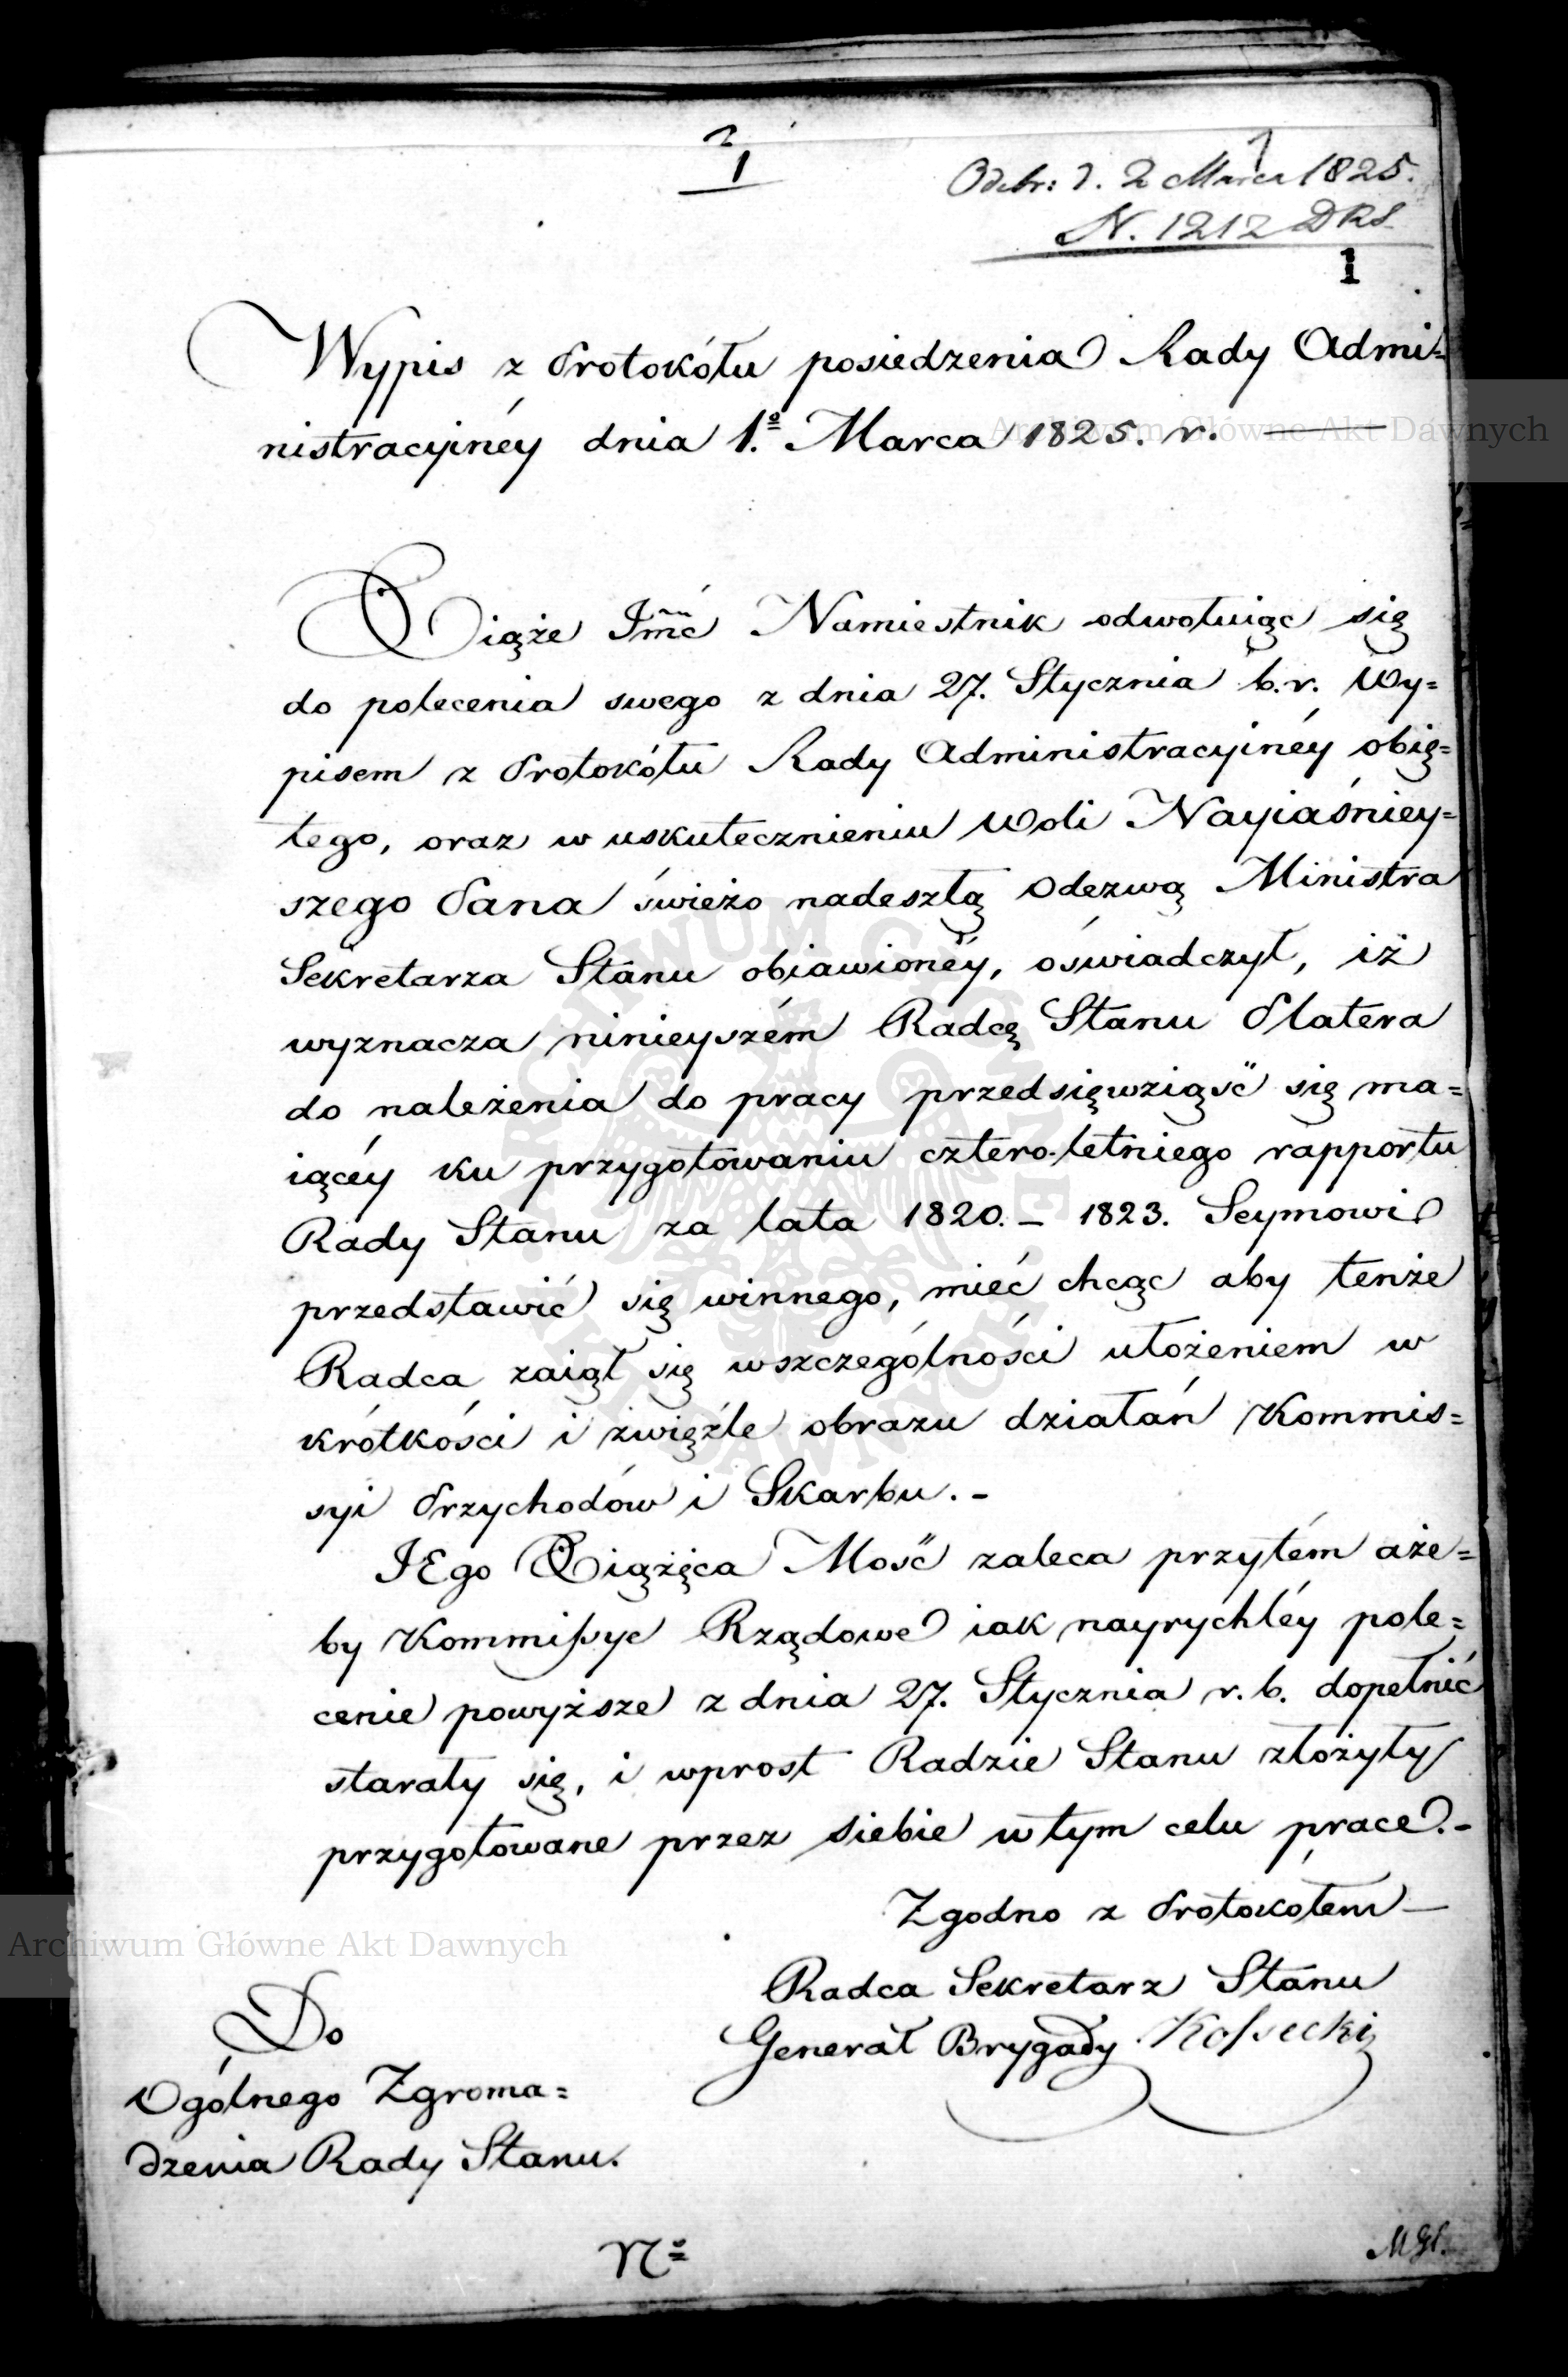 2
1
1
Odebr: d. 2 Marca 1825.
N. 1212 DRS
1
Wypis z Protokółu posiedzenia Rady Admi=
nistracyinéy dnia 1.º Marca 1825. r.
Xiąże Jmć Namiestnik odwołuiąc się
do polecenia swego z dnia 27. Stycznia b. r. Wy=
pisem z Protokółu Rady Administracyinéy obię=
tego, oraz w uskutecznieniu Woli Nayiaśniey=
szego Pana świeżo nadeszłą Odezwą Ministra
Sekretarza Stanu obiawionéy, oświadczył, iż
wyznacza ninieyszém Radcę Stanu Platera
do należenia do pracy przedsięwziąść się ma=
iącéy ku przygotowaniu cztero-letniego rapportu
Rady Stanu za lata 1820. – 1823. Seymowi
przedstawić się winnego, mieć chcąc aby tenże
Radca zaiął się wszczególności ułożeniem w
krótkości i zwięźle obrazu działań Kommis=
syi Przychodów i Skarbu. –
JEgo Xiążęca Mość zaleca przytém aże=
by Kommissye Rządowe iak nayrychléy pole=
cenie powyższe z dnia 27. Stycznia r. b. dopełnić
starały się, i wprost Radzie Stanu złożyły
przygotowane przez siebie w tym celu prace. –
Zgodno z Protokółem –
Radca Sekretarz Stanu
Generał Brygady Kossecki
Do
Ogólnego Zgroma=
dzenia Rady Stanu.
Nº
Archiwum Główne Akt Dawnych
Archiwum Główne Akt Dawnych
ARCHIWUM GŁÓWNE AKT DAWNYCH